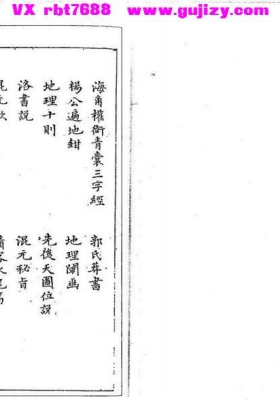 VX rbt7688 www.gujizy.com
海角權衡青囊三字經
郭氏葬書
楊公遍地鉗
地理闡幽
地理十則
先後天圖位說
洛書說
混元秘旨